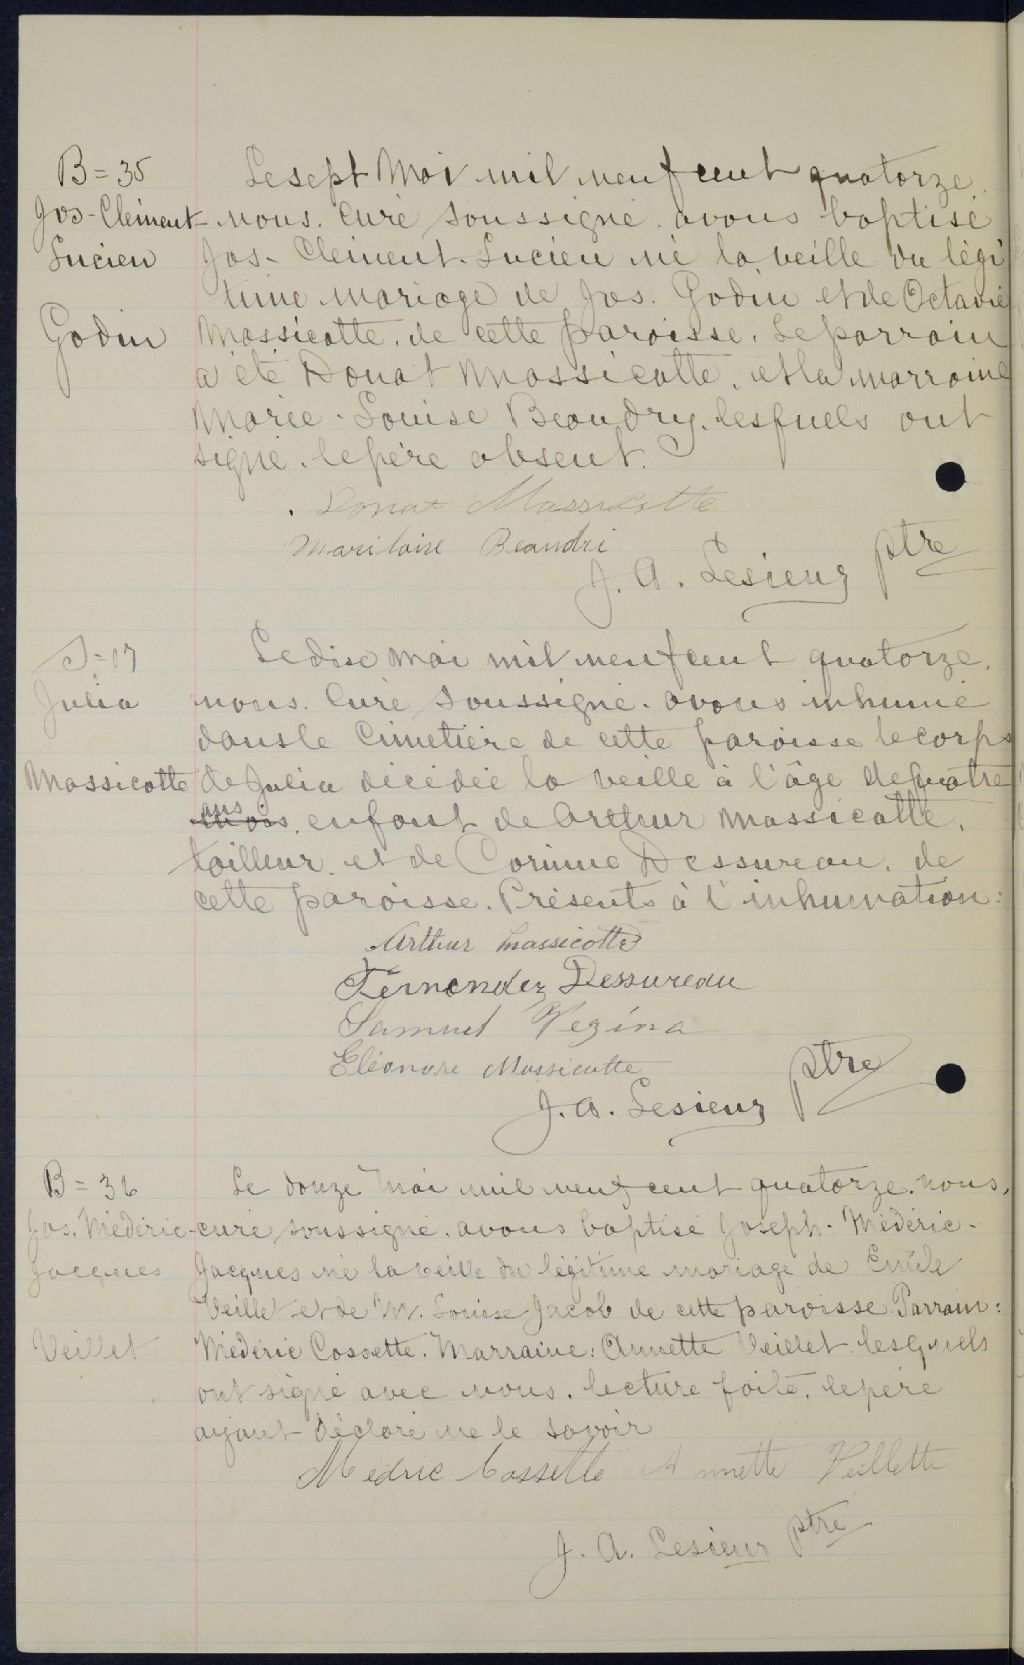 B = 35
Jos-Clément
Lucien
Godin
Le sept Mai mil neuf cent quatorze,
nous, Curé soussigné avons baptisé
Jos- Clément- Lucien né la veille du légi
time mariage de Jos. Godin et de Octavie
Massicotte, de cette paroisse. Le parrain
a été Donat Massicotte, et la marraine
Marie-Louise Beaudry, lesquels ont
signé, le père absent.
Donat Massicotte
Marilouise Beaudri
J. A. Lesieur ptre
S = 17
Julia
Massicotte
Le dix mai mil neuf cent quatorze,
nous, Curé soussigné, avons inhumé
dans le Cimetière de cette paroisse le corps
de Julia décédée la veille à l'âge de quatre
ans
mois, enfant de Arthur Massicotte,
tailleur, et de Corinne Dessureau, de
cette paroisse. Présents à l'inhumation:
Arthur Massicotte
Fernendez Dessureau
Samuel Vezina
Eléonore Massicotte
J. A. Lesieur ptre
B = 36
Jos. Médéric-
Jacques
Veillet
Le douze Mai mil neuf cent quatorze, nous,
curé soussigné, avons baptisé Joseph-Médéric-
Jacques né la veille du légitime mariage de Emile
Veillet et de M. Louise Jacob de cette paroisse. Parrain:
Médéric Cossette. Marraine: Annette Veillet lesquels
ont signé avec nous, lecture faite, le père
ayant déclaré ne le savoir
Médric Cossette Annette Veillette
J. A. Lesieur ptre